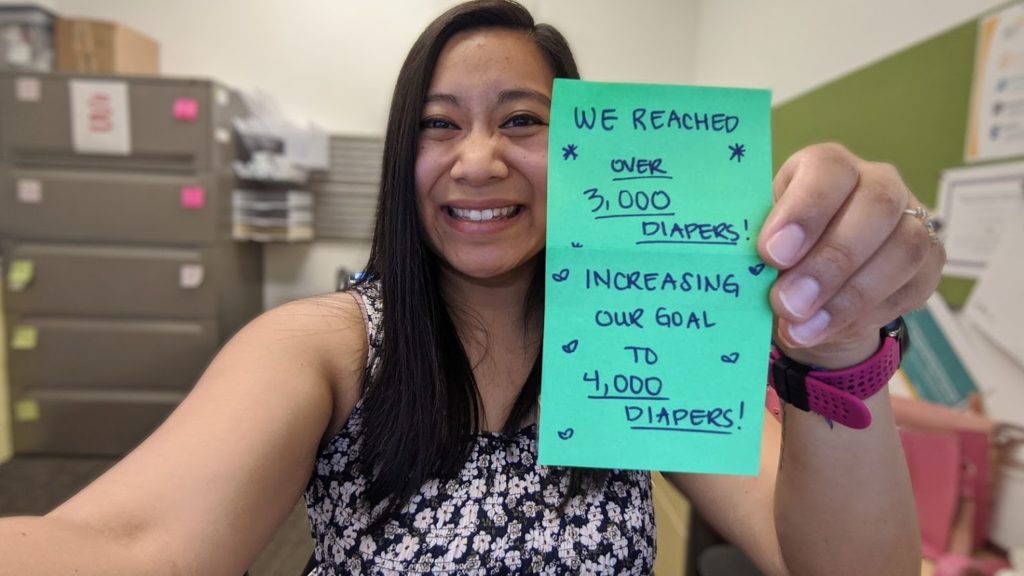 WE REACHED
OVER
3,000
DIAPERS!
INCREASING
OUR GOAL
TO
4,000
DIAPERS!